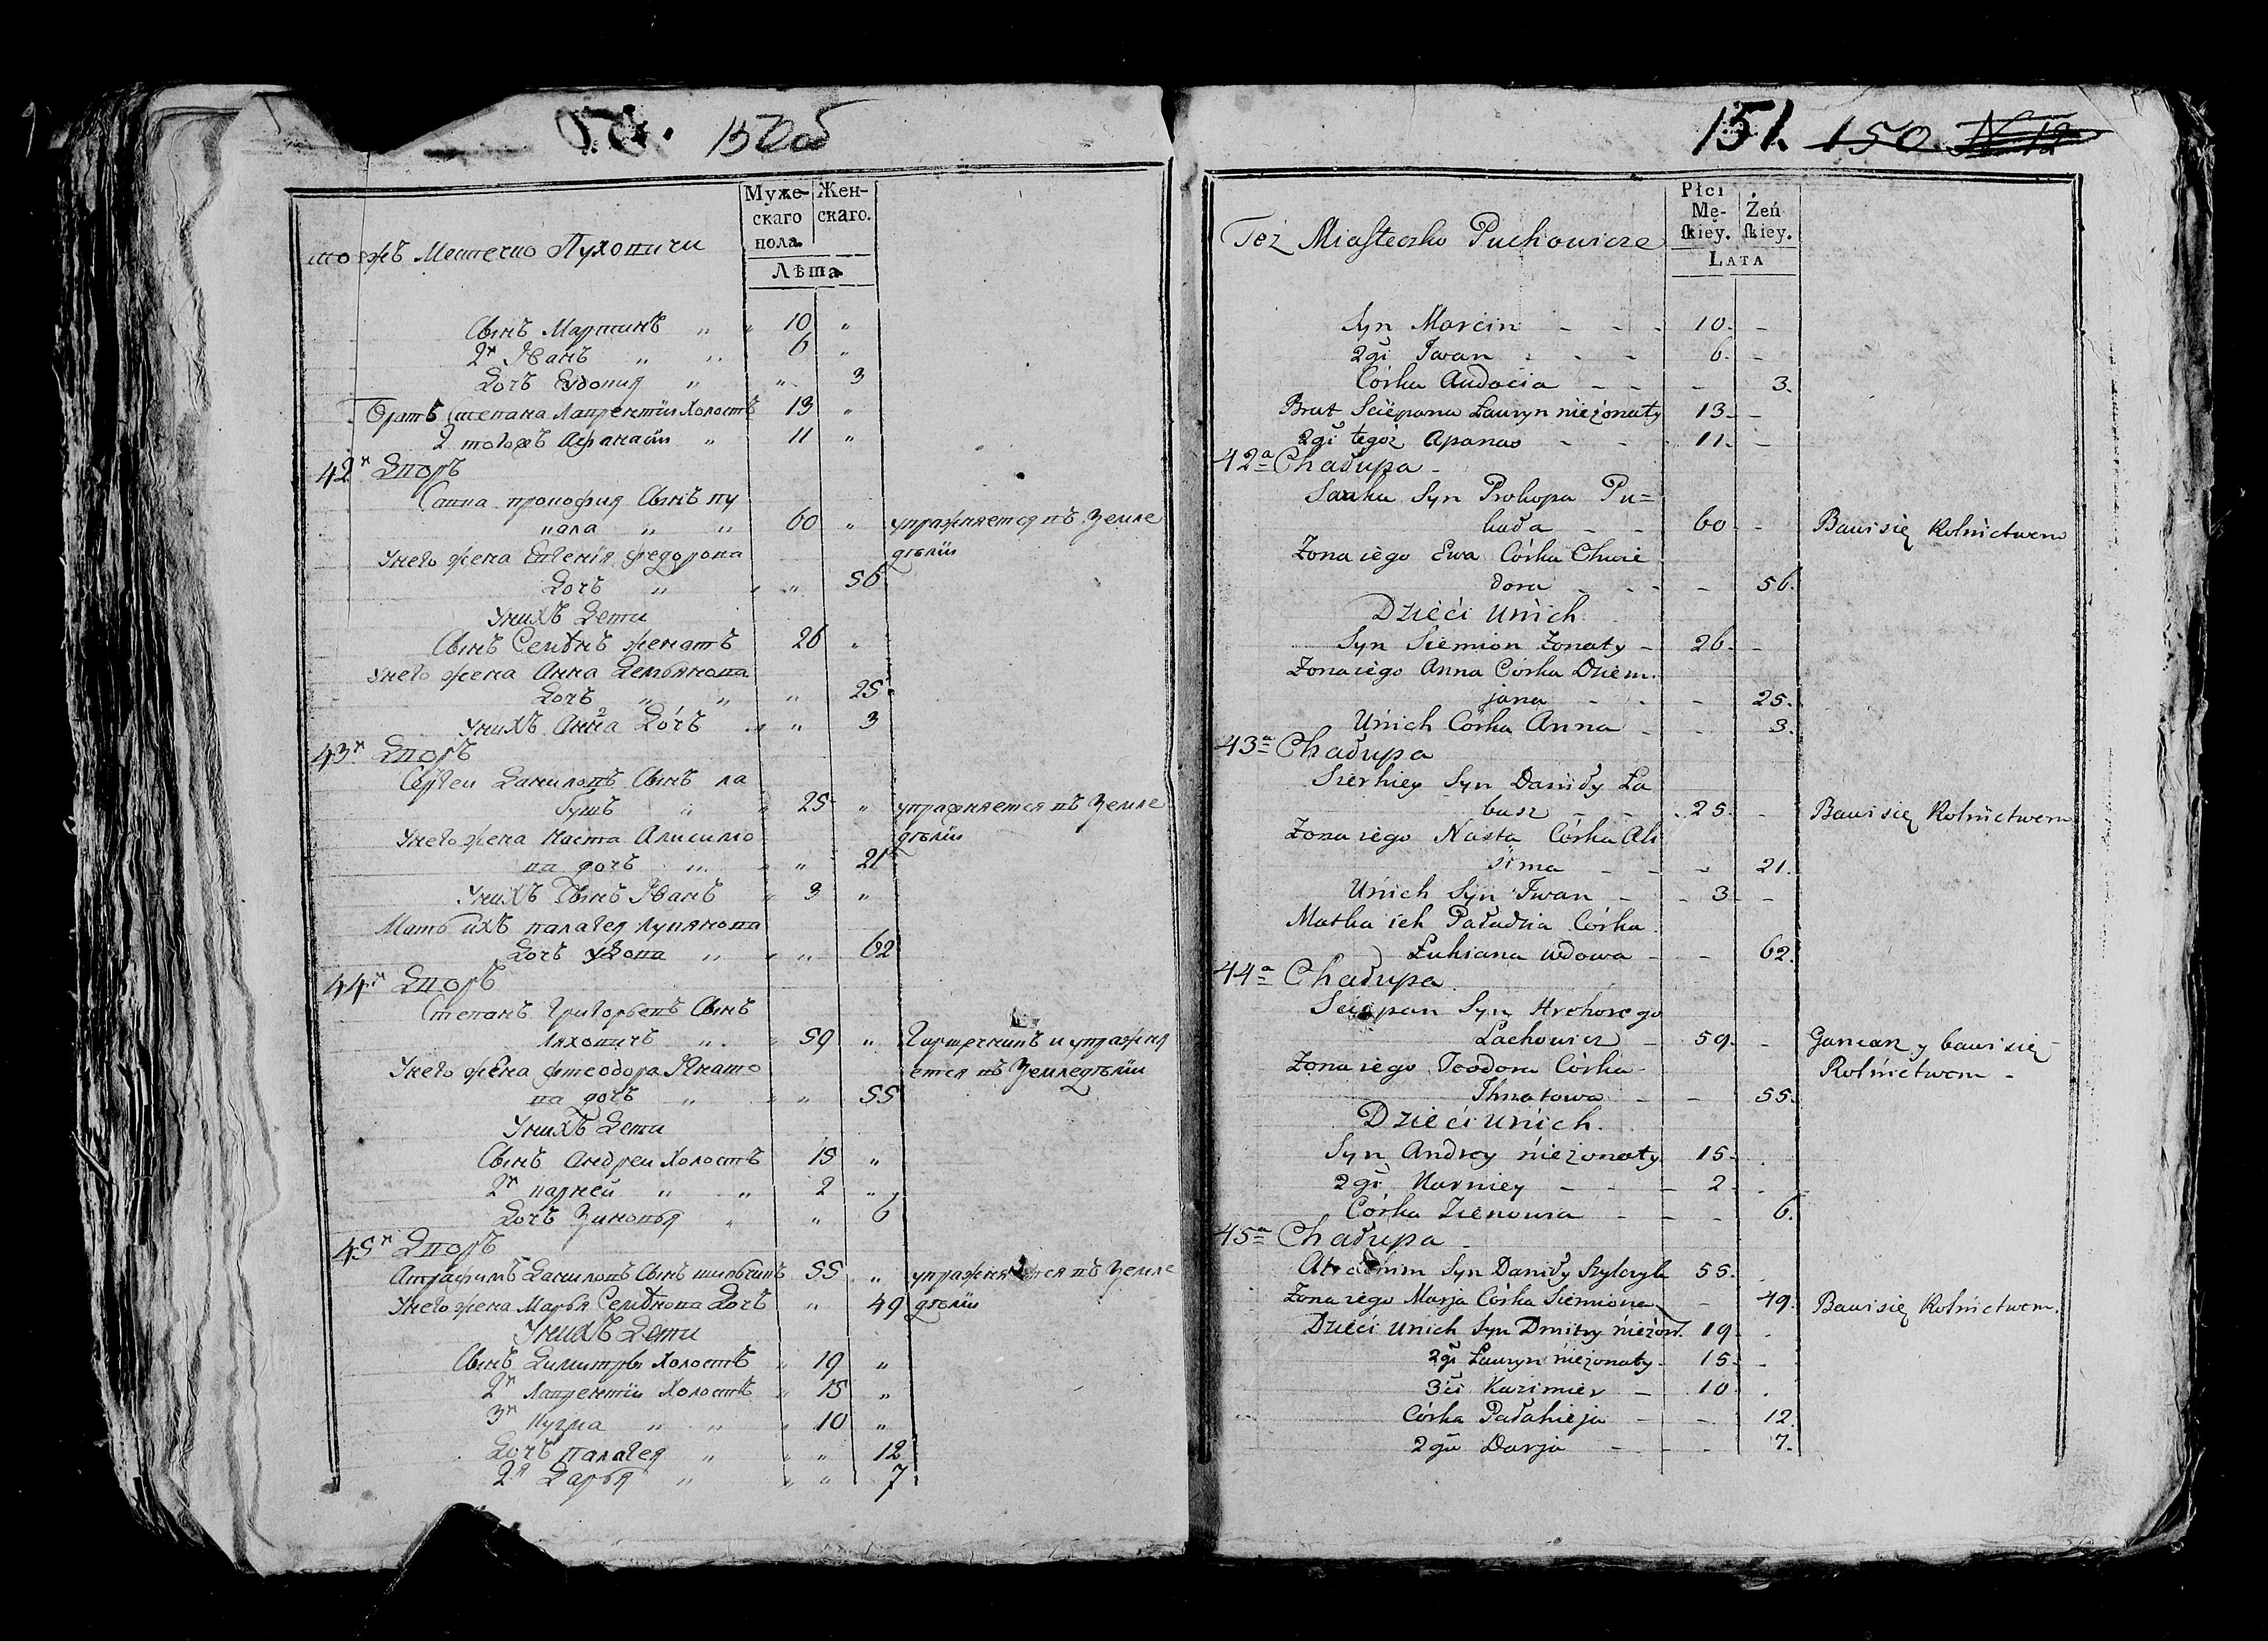 150об
то жъ Местечко Пуховичи
Муже-
скаго
пола.
Жен-
скаго.
Лѣта
Сынъ Мартинъ " " 10 "
2й Иванъ " " 6 "
Дочь Евдокия " " 3
Братъ Степана Лаврентiй Холостъ 13 "
2 тогожъ Афанасiй " 11 "
42й Дворъ
Савка Прокофия Сынъ пу
кала " " 60 " упражняется въ Земле
дѣлiи
Унего жена Евгенiя Федорова
Дочь " " " 56
Унихъ Дети
Сынъ Семѣнъ женатъ 26 "
Унего жена Анна Демьянова
Дочь " " " 25
Унихъ Анна Дочь " " 3
43й Дворъ
Сергеи Даниловъ Сынъ ла
бушъ " " 25 " упражняется въ Земле
дѣлiи
Унего жена Наста Алисимо
ва дочь " " " 21
Унихъ Сынъ Иванъ " 3 "
Мать ихъ палагея Лукянова
Дочь удова " " " 62
44й Дворъ
Степанъ Григорьевъ Сынъ
Ляховичъ " " 59 " Гончечникъ и упражня
ется въ Земледѣлiи
Унего жена Фтеодора Игнато
ва дочь " " " 55
Унихъ Дети
Сынъ Андреи Холостъ 15 "
2й карней " " 2 "
Дочь Зиновья " " 6
45й Дворъ
Атрафимъ Даниловъ Сынъ шильчикъ 55 " упражняется въ Земле
Унего жена Марья Семѣнова Дочь " 49 дѣлiи
Унихъ Дети
Сынъ Димитрiй Холостъ " 19 "
2й Лаврентiи Холостъ " 15 "
3й Кузма " " " 10 "
Дочь палагея " " " 12
2я Дарья " " " 7
151. 150 N 12
Też Miasteczko Puchowicze
Płci
Mę-
skiey.
Żeń
skiey.
LATA
Syn Marcin - - - 10. -
2gi Iwan - - - 6. -
Córka Audocia - - - 3.
Brat Sciepana Łauryn nieżonaty 13. -
2gi tegoż Apanas - - 11. -
42a Chałupa -
Sauka Syn Prokopa Pu=
kała - - 60 - Bawi się Rolnictwem
Zona iego Ewa Córka Chwie
dora - - - - 56.
Dzieci unich
Syn Siemion Zonaty - 26. -
Zona iego Anna Córka Dziem.
jana - - - 25.
Unich Córka Anna - - 3.
43a Chałupa
Sierhiey Syn Daniły Ła
busz - - 25. - Bawi się Rolnictwem
Zona iego Nasta Córka Ali
sima - - - 21.
Unich Syn Iwan - - 3 - -
Matka ich Pałazia Córka
Łukiana wdowa - - 62.
44a Chałupa
Sciepan Syn Hrehorego
Lachowicz - 59. - Garncarz y bawi się
Rolnictwem -
Zona iego Teodora Córka
Ihnatowa - - 55.
Dzieci unich.
Syn Andrey nieżonaty 15. .
2gi Karniey - - - 2. .
Córka Zienowia - - - 6.
45a Chałupa
Syn Daniły Szylczyk 55. .
Zona iego Marja Córka Siemiona - 49. Bawi się Rolnictwem.
Dzieci unich Syn Dmitry nieżon. 19 .
2gi Łauryn nieżonaty - 15 .
3ci Kazimier - 10 .
Córka Pałahieja - - 12.
2ga Darja - - - 7.